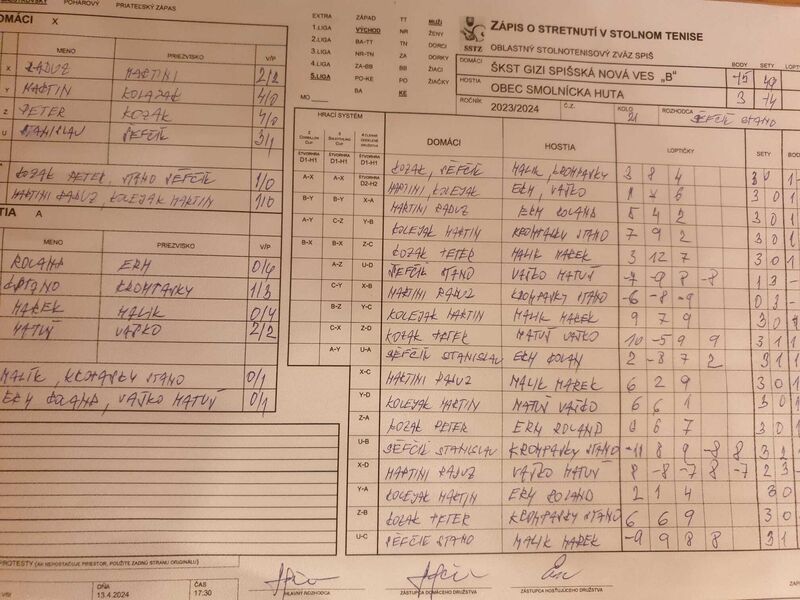 POHÁROVÝ PRIATEĽSKÝ ZÁPAS
DOMÁCI X
MENO PRIEZVISKO V/P
X RADUZ MARTINI 2/2
Y MARTIN 4/0
Z PETER KOZÁK 4/0
U STANISLAV ŠEFČÍK 3/1
KOZÁK PETER, STANO ŠEFČÍK 1/0
MARTINI RADUZ, KOLEJAK MARTIN 1/0
TIA A
MENO PRIEZVISKO V/P
ROLAND ERM 0/4
STANO KROMPASKY 1/3
MAREK MALIK 0/4
MATUŠ VAŠKO 2/2
MALÍK, KROMPASKY STANO 0/1
ERM ROLAND, VAŠKO MATUŠ 0/1
PROTESTY (AK NEPOSTAČUJE PRIESTOR, POUŽITE ZADNÚ STRANU ORIGINÁLU)
DŇA 13.4.2024
ČAS 17:30
HLAVNÝ ROZHODCA
ZÁSTUPCA DOMÁCEHO DRUŽSTVA
ZÁSTUPCA HOSŤUJÚCEHO DRUŽSTVA
EXTRA ZÁPAD TT MUŽI
1.LIGA VÝCHOD NR ŽENY
2.LIGA BA-TT TN DORCI
3.LIGA NR-TN ZA DORKY
4.LIGA ZA-BB BB ŽIACI
5.LIGA PO-KE PO ŽIAČKY
MO BA KE
SSTZ
ZÁPIS O STRETNUTÍ V STOLNOM TENISE
OBLASTNÝ STOLNOTENISOVÝ ZVÄZ SPIŠ
DOMÁCI ŠKST GIZI SPIŠSKÁ NOVÁ VES „B" BODY 15 SETY 49 LOPT
HOSTIA OBEC SMOLNÍCKA HUTA 3 14
ROČNÍK 2023/2024 Č.Z. KOLO 21 ROZHODCA ŠEFČÍK STANO
HRACÍ SYSTÉM
DOMÁCI HOSTIA LOPTIČKY SETY BOD
ŠTVORHRA D1-H1 ŠTVORHRA D1-H1 ŠTVORHRA D1-H1 KOZÁK, ŠEFČÍK MALIK, KROMPASKY 3 8 4 3 0 1
A-X A-X ŠTVORHRA D2-H2 MARTINI, KOLEJAK ERM, VAŠKO 6 3 0 1
B-Y B-Y X-A MARTINI RADUZ ERM ROLAND 5 4 2 3 0 1
A-Y C-Z Y-B KOLEJAK MARTIN KROMPASKY STANO 7 9 2 3 0 1
B-X B-X Z-C KOZÁK PETER MALIK MAREK 3 12 7 3 0 1
A-Z U-D ŠEFČÍK STANO VAŠKO MATUŠ -7 -9 8 -8 1 3 -
C-Y X-B MARTINI RADUZ KROMPASKY STANO -6 -8 -9 0 3 -
B-Z Y-C KOLEJAK MARTIN MALIK MAREK 9 7 9 3 0 1
C-X Z-D KOZÁK PETER MATUŠ VAŠKO 10 -5 9 9 3 1 1
A-Y U-A ŠEFČÍK STANISLAV ERM ROLAN 2 -8 7 2 3 1 1
X-C MARTINI RADUZ MALIK MAREK 6 2 9 3 0 1
Y-D KOLEJAK MARTIN MATUŠ VAŠKO 6 6 1 3 0 1
Z-A KOZÁK PETER ERM ROLAND 6 7 3 0 1
U-B ŠEFČÍK STANISLAV KROMPASKY STANO -11 8 9 -8 8 3 2
X-D MARTINI RADUZ VAŠKO MATUŠ 8 -8 -7 8 -7 2 3
Y-A KOLEJAK MARTIN ERM ROLAND 2 1 4 3 0
Z-B KOZÁK PETER KROMPASKY STANO 6 6 9 3 0
U-C ŠEFČÍK STANO MALIK MAREK -9 9 8 8 3 1